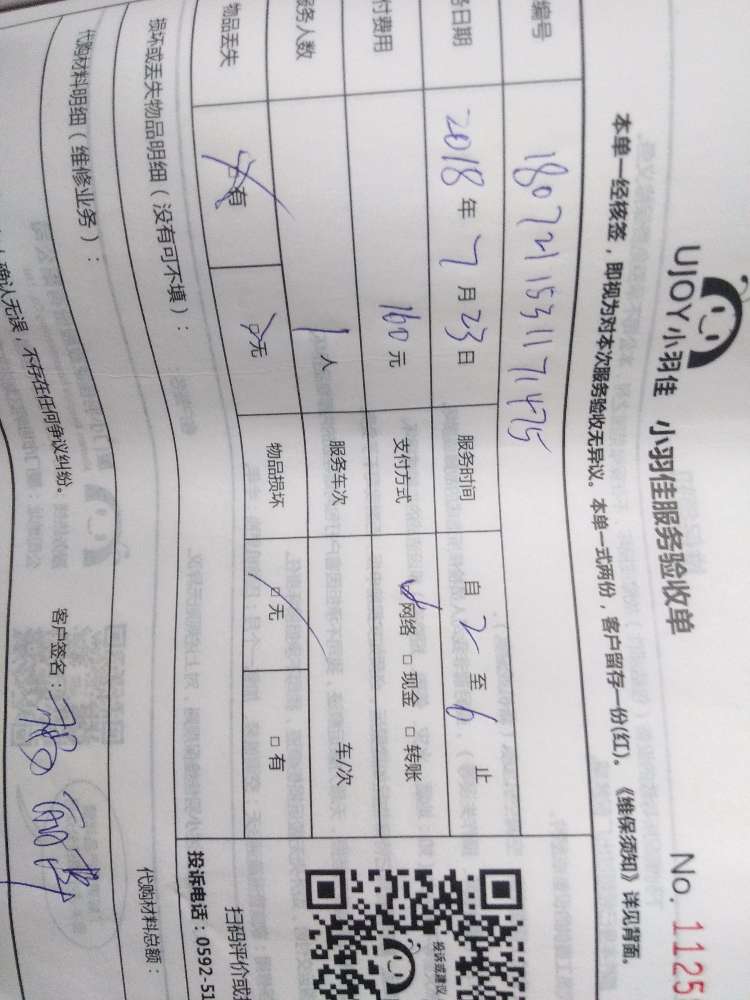 UJOY小羽佳 小羽佳服务验收单 No. 1125
本单一经核签，即视为对本次服务验收无异议。本单一式两份，客户留存一份(红)。《维保须知》详见背面。
编号 180721531171475
务日期 2018 年 7 月 23 日 服务时间 自 2 至 6 止
付费用 160 元 支付方式 网络 □ 现金 □ 转账
服务人数 1 人 服务车次 车/次
物品丢失 有 □无 物品损坏 □ 无 □ 有
损坏或丢失物品明细（没有可不填）：
代购材料明细（维修业务）： 代购材料总额：
确认无误，不存在任何争议纠纷。 客户签名：
投诉或建议
扫码评价或
投诉电话：0592-51